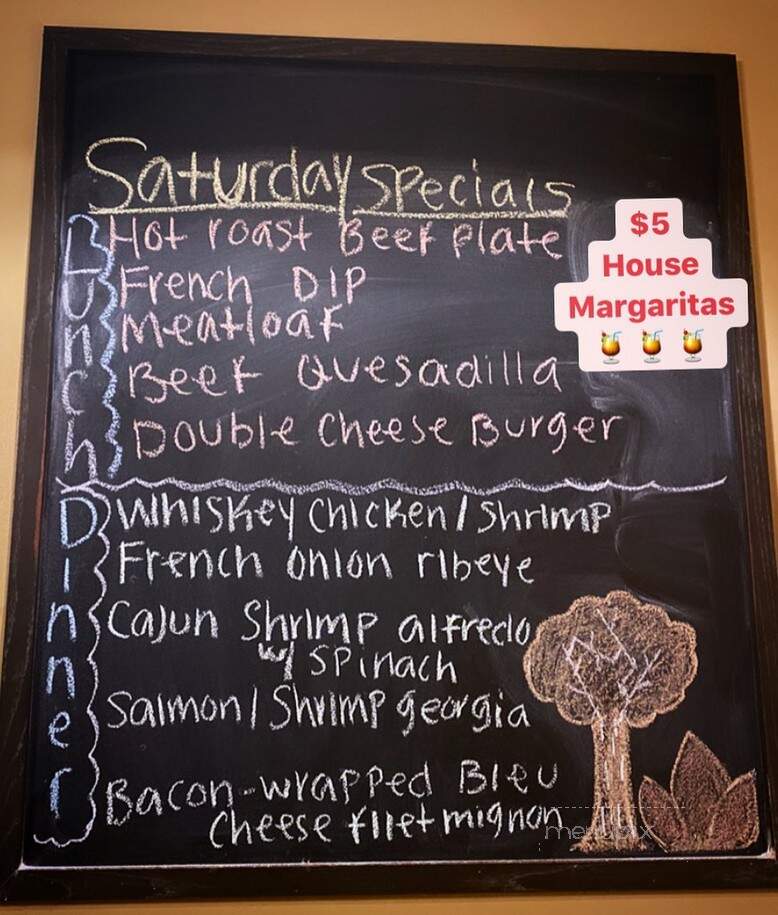 Saturday Specials
Lunch
Hot roast Beef Plate
French Dip
Meatloaf
Beef Quesadilla
Double Cheese Burger
$5
House
Margaritas
Dinner
Whiskey Chicken/Shrimp
French Onion ribeye
Cajun Shrimp alfredo
w/ spinach
Salmon/Shrimp georgia
Bacon-wrapped Bleu
Cheese filet mignon
menupix